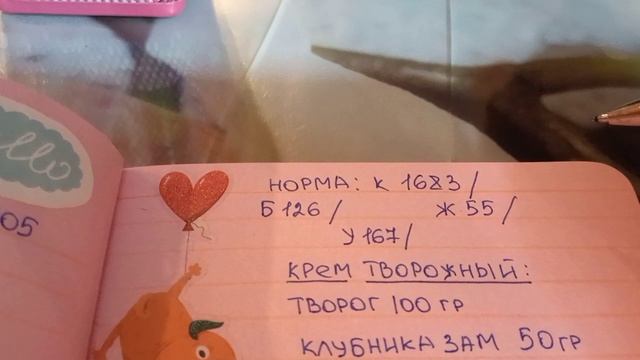 llo
05
НОРМА: К 1683/
Б 126/ Ж 55/
У 167/
КРЕМ ТВОРОЖНЫЙ:
ТВОРОГ 100 ГР
КЛУБНИКА ЗАМ 50 ГР